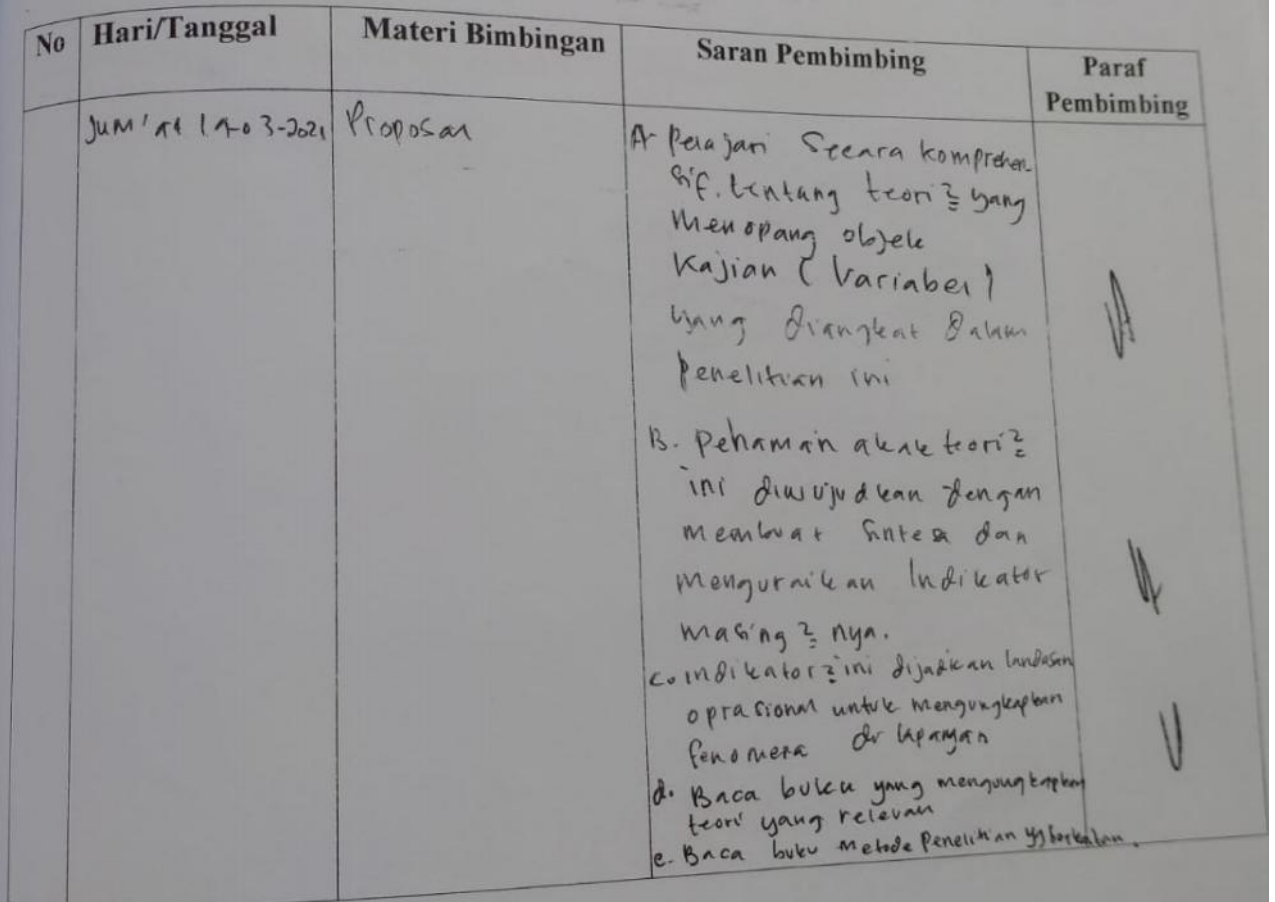 No Hari/Tanggal Materi Bimbingan Saran Pembimbing Paraf
Pembimbing
Jum'at 19-03-2021 Proposal
A- Pelajari Secara komprehen-
sif. tentang teori2 yang
Menopang objek
Kajian (Variabel)
yang diangkat dalam
Penelitian ini
B. Pehaman akak teori2
ini diwujudkan dengan
membuat Sintesa dan
menguraikan Indikator
masing2 nya.
C. indikator2 ini dijadikan landasan
oprasional untuk mengungkapkan
fenomena di lapangan
d. Baca buku yang mengungkapkan
teori yang relevan
e. Baca buku Metode Penelitian yg berkaitan.